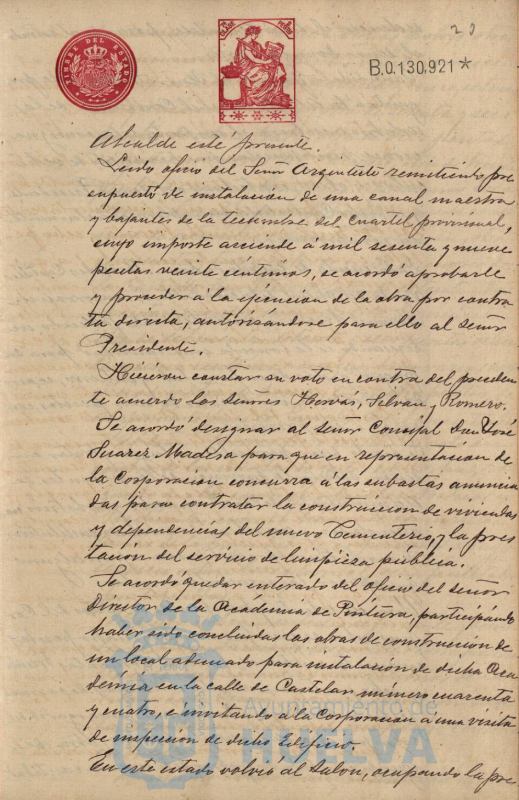 23
TIMBRE DEL ESTADO
CLASE
B.0.130.921*
Alcalde esté presente.
Leido oficio del Señor Arquitecto remitiendo pre
supuesto de instalacion de una canal maestra
y bajantes de la techumbre del Cuartel provisional,
cuyo importe asciende á mil sesenta y nueve
pesetas veinte céntimos, se acordó aprobarle
y proceder á la ejecucion de la obra por contra
ta directa, autorisándose para ello al señor
Presidente.
Hicieron constar su voto en contra del preceden
te acuerdo los señores Hervás, Selvan y Romero.
Se acordó designar al señor Consejal Don José
Suarez para que en representacion de
la Corporacion concurra á las subastas anuncia
das para contratar la construccion de viviendas
y dependencias del nuevo Cementerio, y la pres
tación del servicio de limpieza pública.
Se acordó quedar enterado del oficio del señor
Director de la Academia de Pintura, participando
haber sido concluidas las obras de construccion de
un local adecuado para instalación de dicha Aca
demia en la calle de Castelar número cuarenta
y cuatro, é invitando á la Corporacion á una visita
de inspeccion de dicho Edificio.
En este estado volvió al Salon, ocupando la pre
Ayuntamiento de
HUELVA